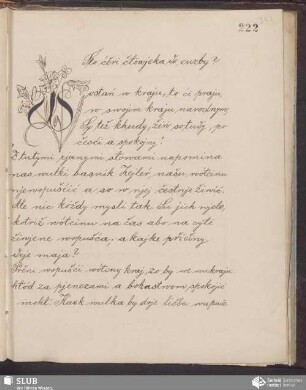 222
Što ćěri čłowjeka do cuzby?
Wostań w kraju, to ći praju,
w swojim kraju narodnym,
Sy tež khudy, žiw so tudy, po-
česći a spokojny!
Z tutymi pjanymi słowami napomina
nas miłki basnik Zejler, našu wótčinu
njewopušćić a so w njej čestnje žiwić.
Ale nic kóždy mysli tak. Su jich wjele,
kotřiž wótčinu na čas abo na cyłe
žiwjenje wopušća, a kajke přičiny
woni maja?
Prěni wopušći wótcny kraj, zo by we wukraju
hłód za pjenezami a bohatstwom spokojić
mohł. Kaak wulka by doje ličba wupuć-
SLUB
Wir führen Wissen.